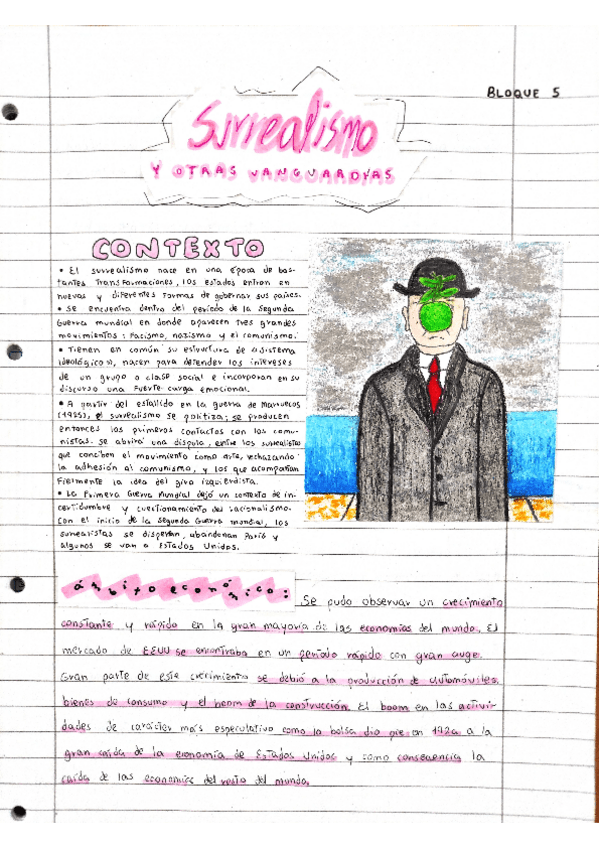 BLOQUE 5
Surrealismo
Y OTRAS VANGUARDIAS
CONTEXTO
• El surrealismo nace en una época de bas-
tantes transformaciones, los estados entran en
nuevas y diferentes formas de gobernar sus países.
• Se encuentra dentro del período de la segunda
Guerra mundial en donde aparecen tres grandes
movimientos: facismo, nazismo y el comunismo.
• Tienen en común su estructura de «sistema
ideológico», nacen para defender los intereses
de un grupo o clase social e incorporan en su
discurso una fuerte carga emocional.
• A partir del estallido en la guerra de Marruecos
(1925), el surrealismo se politiza: se producen
entonces los primeros contactos con los comu-
nistas. Se abrirá una disputa, entre los surrealistas
que conciben el movimiento como arte, rechazando
la adhesión al comunismo, y los que acompañan
fielmente la idea del giro izquierdista.
• La Primera Guerra Mundial dejó un contexto de in-
certidumbre y cuestionamiento del racionalismo.
Con el inicio de la Segunda Guerra mundial, los
surrealistas se dispersan, abandonan París y
algunos se van a Estados Unidos.
ámbito económico:
Se pudo observar un crecimiento
constante y rápido en la gran mayoría de las economías del mundo. El
mercado de EEUU se encontraba en un período rápido con gran auge.
Gran parte de este crecimiento se debió a la producción de automóviles,
bienes de consumo y el boom de la construcción. El boom en las activi-
dades de carácter más especulativo como la bolsa dio pie en a la
gran caída de la economía de Estados Unidos y como consecuencia la
caída de las economías del resto del mundo.